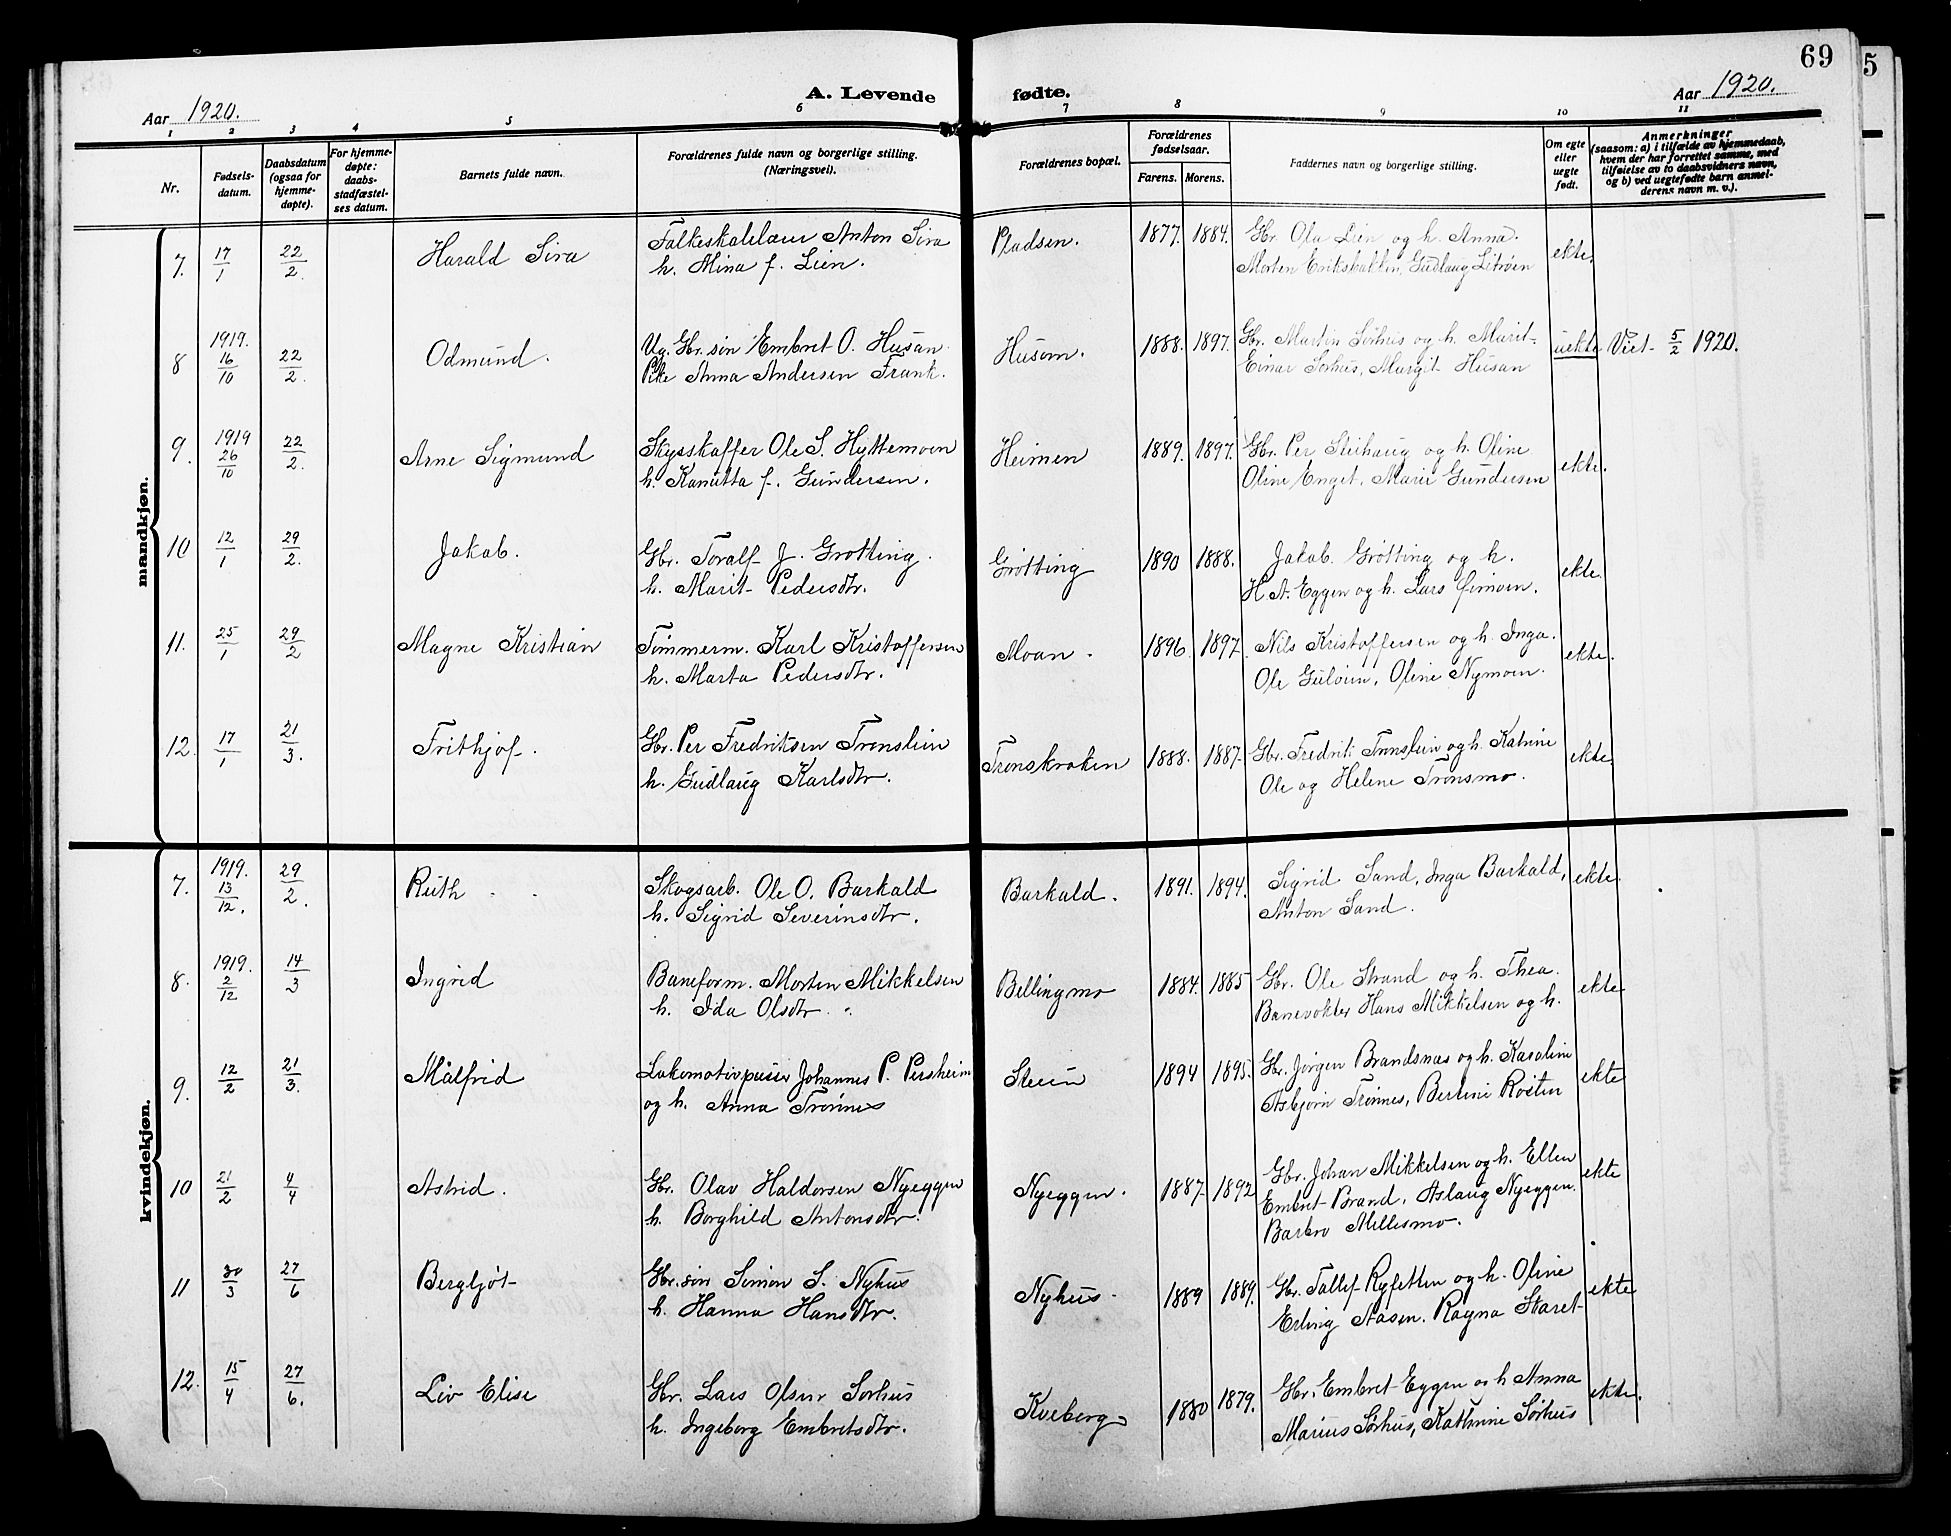 69
5
Aar 1920.
A. Levende fødte.
Aar 1920.
1 2 3 4 5 6 7 8 9 10 11
Nr.
Fødsels-
datum.
Daabsdatum
(ogsaa for
hjemme-
døpte).
For hjemme-
døpte:
daabs-
stadfæstel-
ses datum.
Barnets fulde navn.
Forældrenes fulde navn og borgerlige stilling.
(Næringsvei).
Forældrenes bopæl.
Forældrenes
fødselsaar.
Farens. Morens.
Faddernes navn og borgerlige stilling.
Om egte
eller
uegte
født.
Anmerkninger
(saasom: a) i tilfælde av hjemmedaab,
hvem der har forrettet samme, med
tilføielse av to daabsvidners navn,
og b) ved uegtefødte barn anmel-
derens navn m. v.).
mandkjøn.
7. 17/1 22/2 Harald Sira Anton Sira Pladsen. 1877. 1884. Gbr. Ola Lien og h. Anna. ekte.
h. Mina f. Lien. Morten Eriksbakken, Gudlaug
8 1919. 16/10 22/2. Odmund. Ug. Gbr. søn Embret O. Husan. Husom. 1888. 1897. Gbr. Martin Sørhus og h. Marit uekte Viet 5/2 1920.
Pike Anna Andersen Frank. Einar Sørhus, Margit Husan
9. 1919 26/10 22/2. Arne Sigmund Skysskaffer Ole S. Hyttemoen Heimen 1889. 1897. Gbr. Per Steihaug og h. Oline ekte.
h. Kanutta f. Gundersen. Oline Enget, Marie Gundersen
10 12/1 29/2. Jakab. Gbr. Toralf J. Grøtting. Grøtting 1890 1888. Jakab Grøtting og h. ekte.
h. Marit Pedersdtr. H. A. Eggen og h. Lars
11. 25/1 29/2 Magne Kristian Tømmerm. Karl Kristoffersen Moan. 1896. 1897. Nils Kristoffersen og h. Inga. ekte.
h. Marta Pedersdtr. Ole Oline Nymoen.
12. 17/1 21/3. Frithjof. Gbr. Per Fredriksen Trønslien Trønskroken 1888. 1887. Gbr. Fredrik Trønslien og h. Katrine ekte.
h. Gudlaug Karlsdtr. Ole og Helene Trønsmo.
kvindekjøn.
7. 1919. 13/12. 29/2. Ruth Skogsarb. Ole O. Barkald Barkald. 1891. 1894. Sigrid Sand, Inga Barkald, ekte.
h. Sigrid Severinsdtr. Anton Sand.
8. 1919. 2/12 14/3 Ingrid Baneform. Morten Mikkelsen Bellingmo 1884. 1885 Gbr. Ole Strand og h. Thea. ekte
h. Ida Olsdtr. Banevokter Hans Mikkelsen og h.
9. 12/2 21/3. Målfrid Lokomotivpusser Johannes P. Persheim Steien 1894 1895. Gbr. Jørgen Brandsnes og h. Karoline ekte
og h. Anna Trønnes Asbjørn Trønnes, Berline Rosten
10 21/2 4/4 Astrid. Gbr. Olav Haldorsen Nyeggen Nyeggen. 1887. 1892 Gbr. Johan Mikkelsen og h. Ellen ekte
h. Borghild Antonsdtr. Embret Brand, Aslaug Nyeggen.
Barbro Millesmo.
11 30/3 27/6 Bergljot Gbr. søn Simon S. Nyhus Nyhus. 1889 1889. Gbr. Tollef Ryfetten og h. Oline ekte
h. Hanna Hansdtr. Erling Aasen. Ragna Staret
12. 15/4 27/6. Liv Elise Gbr. Lars Olsen Sørhus Kveberg 1880 1879. Gbr. Embret Eggen og h Anna ekte.
h. Ingeborg Embretsdtr. Marius Sørhus, Kathrine Sørhus